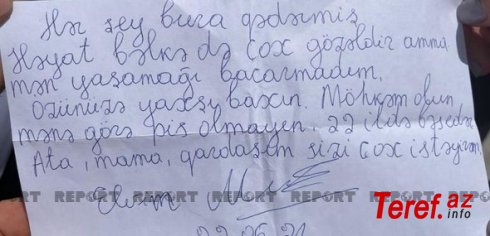 Hər şey bura qədərmiş
Həyat bəlkə də çox gözəldir amma
mən yaşamağı bacarmadım.
Özünüzə yaxşı baxın. Möhkəm olun
mənə görə pis olmayın. 22 ildə bəsdi
Ata, mama, qardaşım sizi çox istəyirəm
REPORT REPORT REPORT REPORT REPORT
Elvin
Teref.az
info